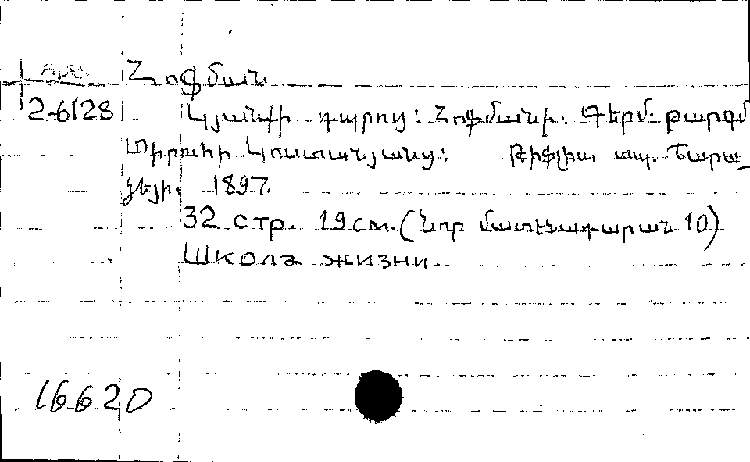 Հոֆման
2-6128 Կյանքի դպրոց: Հոֆմանի. Գերմ. թարգմ
Տիրուհի Կոստանյանց: Թիֆլիս, տպ. Շարա_
ձեյի. 1897.
32 стр. 19 см. (Նոր մատենադարան 10)
Школа жизни
16620